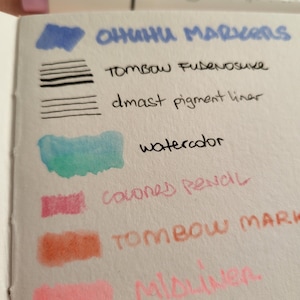 OHUHU MARKERS
TOMBOW FUDENOSUKE
dmast pigment liner
watercolor
COLORED PENCIL
TOMBOW MARK
MIDLINER